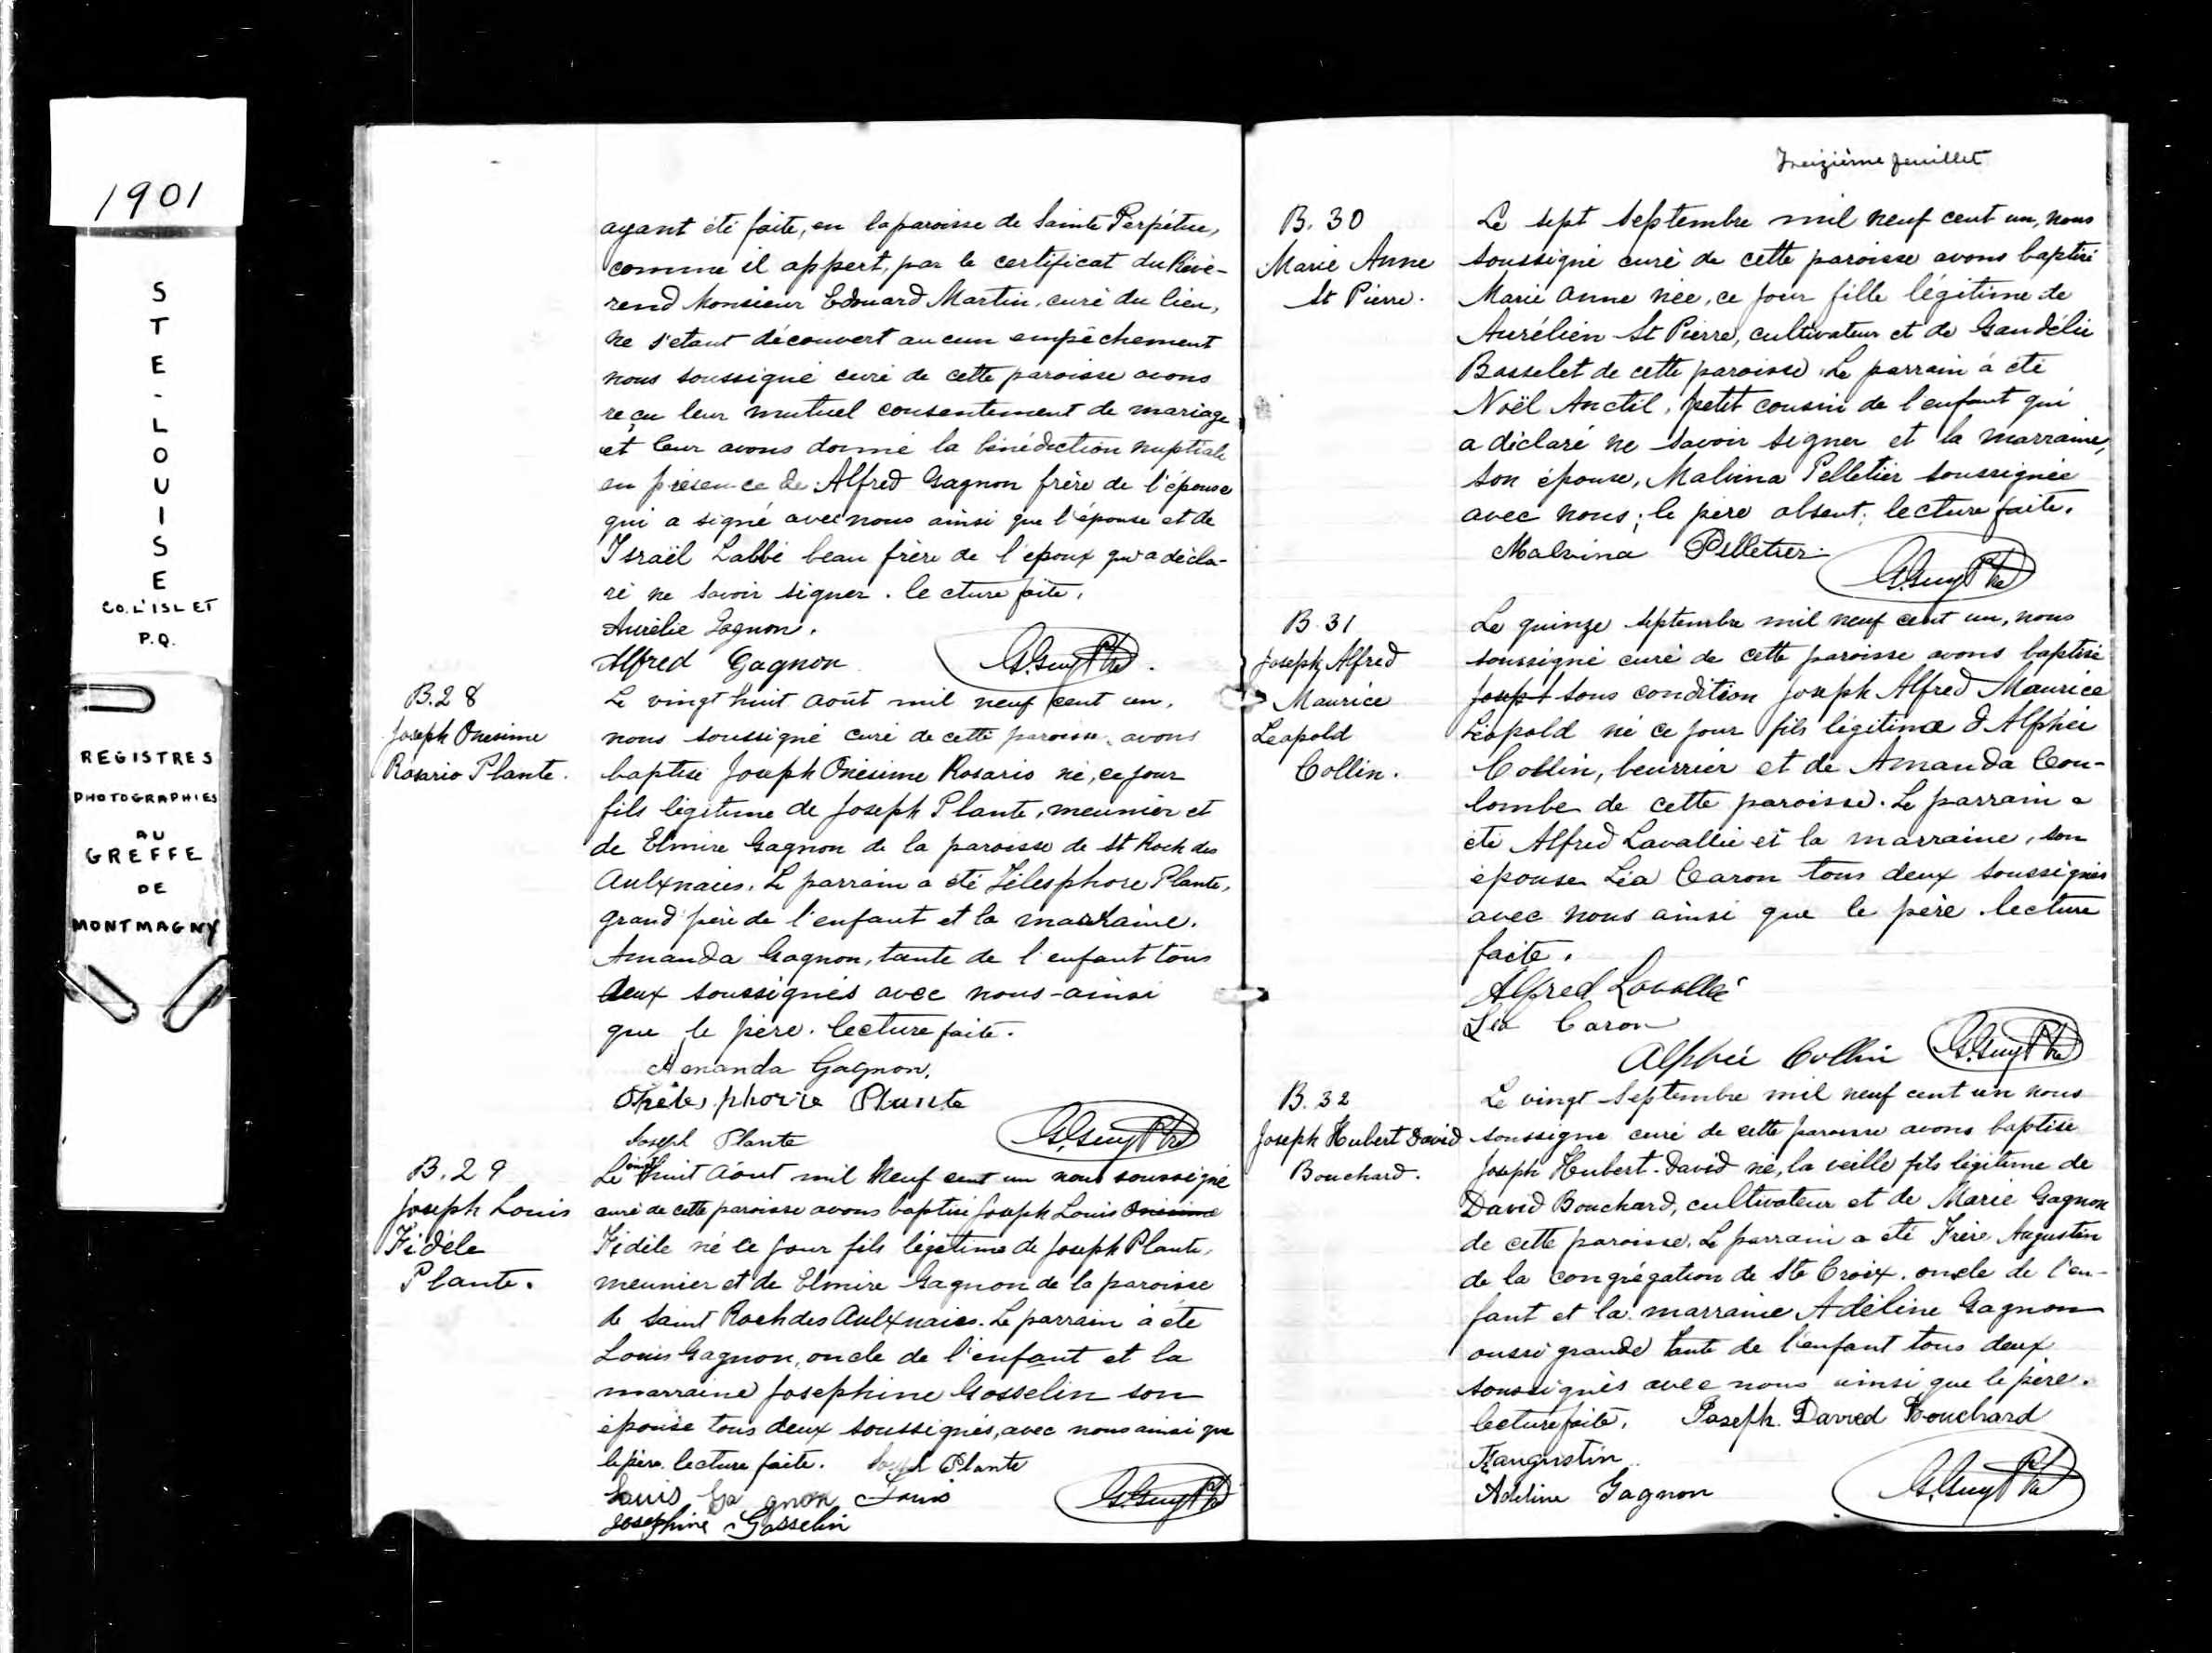 1901
STE-LOUISE
CO. L'ISLET
P.Q.
REGISTRES
PHOTOGRAPHIES
AU
GREFFE
DE
MONTMAGNY
ayant été faite, en la paroisse de Sainte Perpétue,
comme il appert, par le certificat du Révé-
rend Monsieur Edouard Martin, curé du lieu,
ne s'etant découvert aucun empêchement
nous soussigné curé de cette paroisse avons
reçu leur mutuel consentement de mariage
et leur avons donné la bénédiction nuptiale
en présence de Alfred Gagnon frère de l'épouse
qui a signé avec nous ainsi que l'épouse et de
Israël Labbé beau frère de l'époux qui a décla-
ré ne savoir signer. lecture faite.
Aurélie Gagnon.
Alfred Gagnon G. Guy Ptre.
B.28
Joseph Onesime
Rosario Plante.
Le vingt huit août mil neuf cent un,
nous soussigné curé de cette paroisse avons
baptisé Joseph Onésime Rosario né, ce jour
fils légitime de Joseph Plante, meunier et
de Elmire Gagnon de la paroisse de St Roch des
Aulxnaies. Le parrain a été Télesphore Plante,
grand père de l'enfant et la marraine.
Amanda Gagnon, tante de l'enfant tous
deux soussignés avec nous ainsi
que le père. lecture faite.
Amanda Gagnon.
Thélesphorie Plante
Joseph Plante G. Guy Ptre
B.29
Joseph Louis
Fidèle
Plante.
Le vingt huit août mil neuf cent un nous soussigné
curé de cette paroisse avons baptisé Joseph Louis Onésime
Fidèle né ce jour fils légitime de Joseph Plante,
meunier et de Elmire Gagnon de la paroisse
de Saint Roch des Aulxnaies. Le parrain à été
Louis Gagnon, oncle de l'enfant et la
marraine Josephine Gosselin son
épouse tous deux soussignés, avec nous ainsi que
le père. lecture faite. Joseph Plante
Louis Gagnon Louis G. Guy Ptre
Josephine Gosselin
Treizième feuillet
B. 30
Marie Anne
St Pierre.
Le sept Septembre mil neuf cent un, nous
soussigné curé de cette paroisse avons baptisé
Marie Anne née, ce jour fille légitime de
Aurélien St Pierre, cultivateur et de Gaudélie
Bosselet de cette paroisse. Le parrain à été
Noël Anctil, petit cousin de l'enfant qui
a déclaré ne savoir signer et la marraine,
son épouse, Malvina Pelletier soussignée
avec nous; le père absent, lecture faite.
Malvina Pelletier
G. Guy Ptre
B. 31
Joseph Alfred
Maurice
Leopold
Collin.
Le quinze septembre mil neuf cent un, nous
soussigné curé de cette paroisse avons baptisé
Joseph sous condition Joseph Alfred Maurice
Léopold né ce jour fils légitime d'Alphée
Collin, beurrier et de Amanda Cou-
lombe de cette paroisse. Le parrain a
été Alfred Lavallée et la marraine, son
épouse Léa Caron tous deux soussignés
avec nous ainsi que le père. lecture
faite.
Alfred Lavallée
Léa Caron
Alphée Collin G. Guy Ptre
B. 32
Joseph Hubert David
Bouchard.
Le vingt Septembre mil neuf cent un nous
soussigné curé de cette paroisse avons baptisé
Joseph Hubert-David né, la veille fils légitime de
David Bouchard, cultivateur et de Marie Gagnon
de cette paroisse. Le parrain a été Frère Augustin
de la congrégation de Ste Croix. oncle de l'en-
fant et la marraine Adéline Gagnon
aussi grande tante de l'enfant tous deux
soussignés avec nous ainsi que le père.
lecture faite. Joseph David Bouchard
F. augustin
Adeline Gagnon G. Guy Ptre